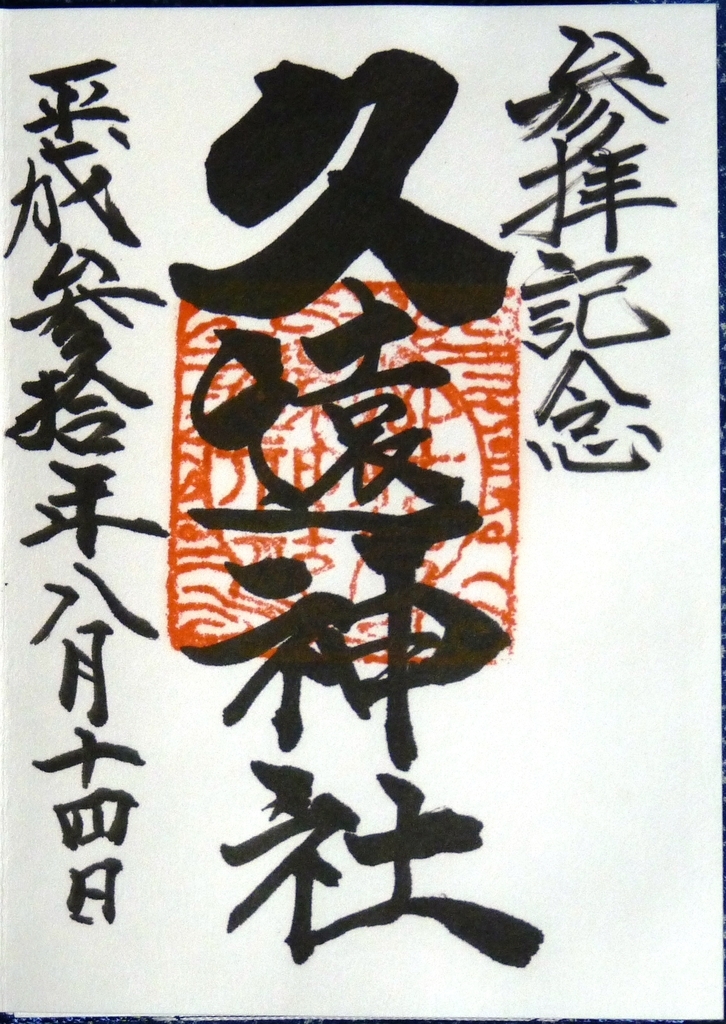 参拝記念
久遠神社
平成参拾年八月十四日